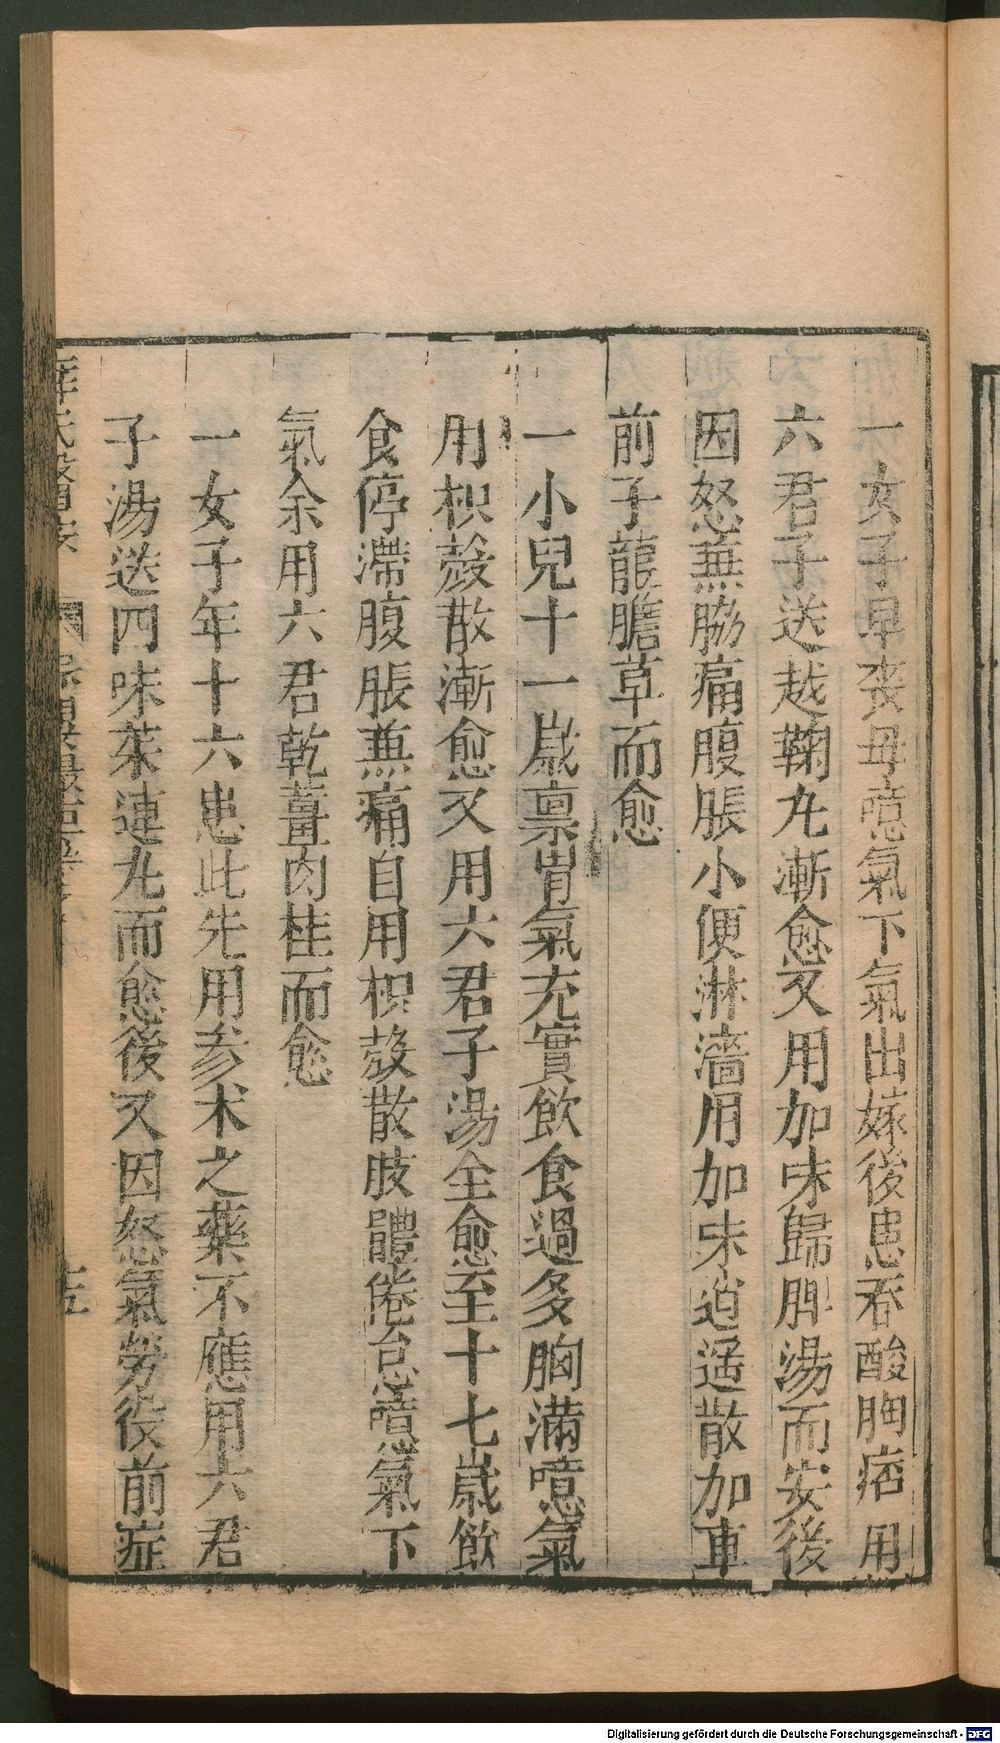 一女子早喪母噫氣下氣出嫁後患吞酸胸痞用
六君子送越鞠丸漸愈又用加味歸脾湯而安後
因怒兼脇痛腹脹小便淋濇用加味逍遥散加車
前子龍膽草而愈
一小兒十一歲禀胃氣充實飲食過多胸滿噫氣
用枳殼散漸愈又用六君子湯全愈至十七歲飲
食停滯腹脹兼痛自用枳殼散肢體倦怠噫氣下
氣余用六君乾薑肉桂而愈
一女子年十六患此先用参术之藥不應用六君
子湯送四味茱連丸而愈後又因怒氣勞役前症
十五
Digitalisierung gefördert durch die Deutsche Forschungsgemeinschaft - DFG